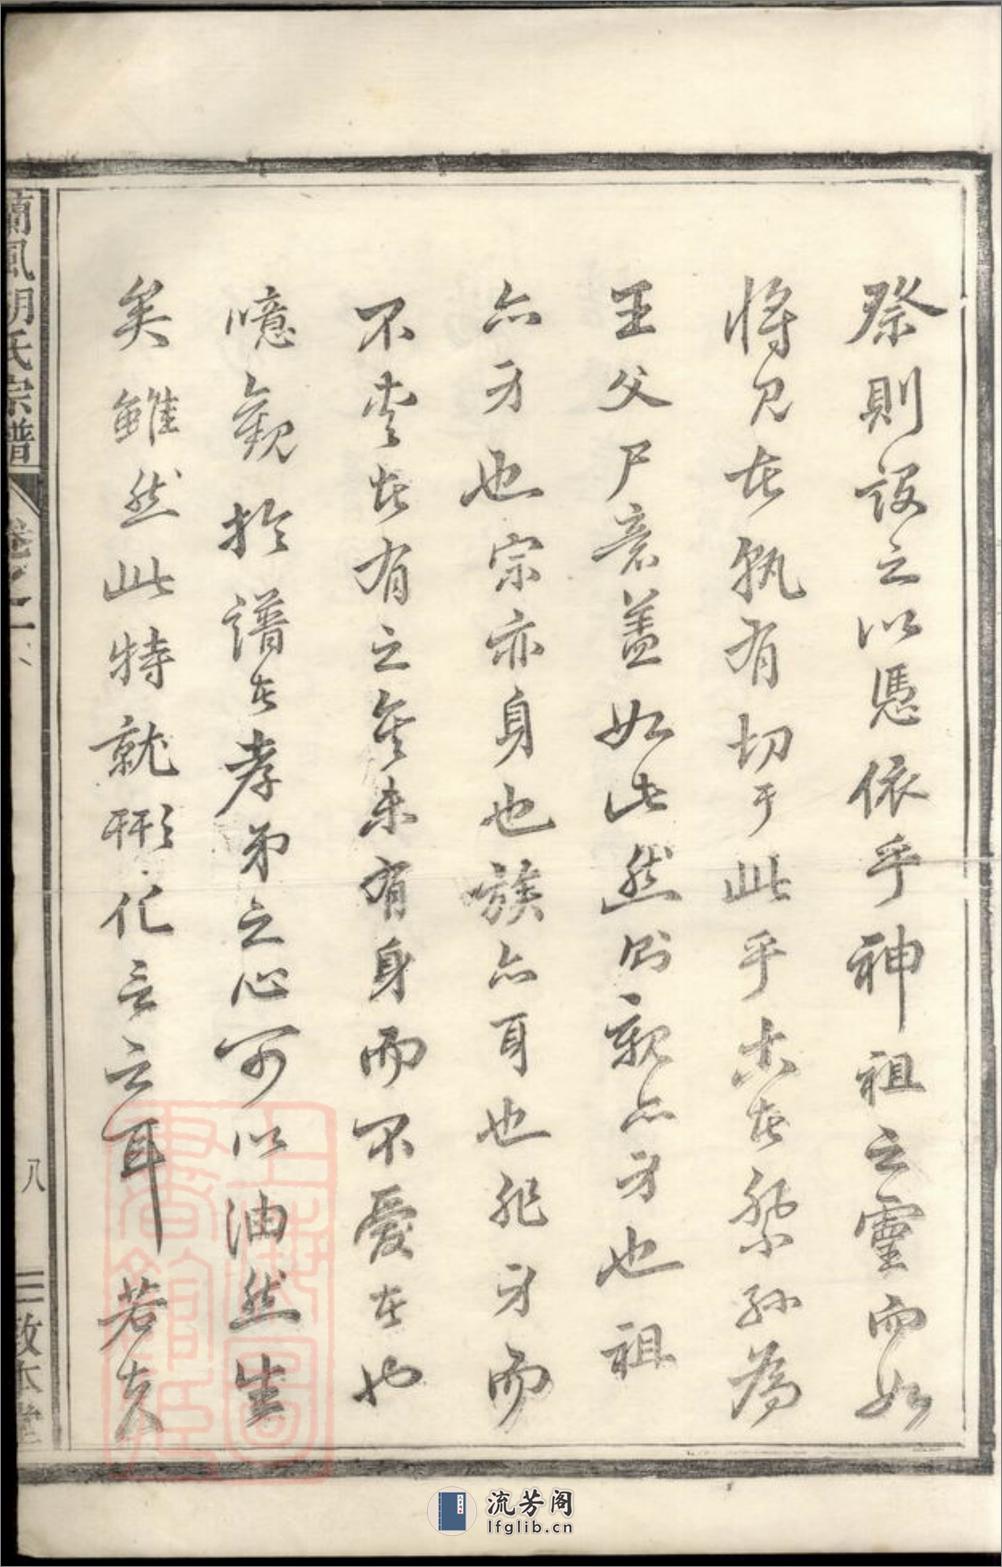 祭則設之以憑依乎神祖之靈而如
將見者孰有切于此乎古者祭孫為
王父尸意蓋如此然則親亦身也祖
亦身也宗亦身也族亦身也非身而
不愛者有之矣未有身而不愛者也
噫觀於譜者孝弟之心可以油然生
矣雖然此特就形化言之耳若夫
蘭風胡氏宗譜
卷之一
八
三
敦本堂
上海圖書館藏
流芳阁
lfglib.cn